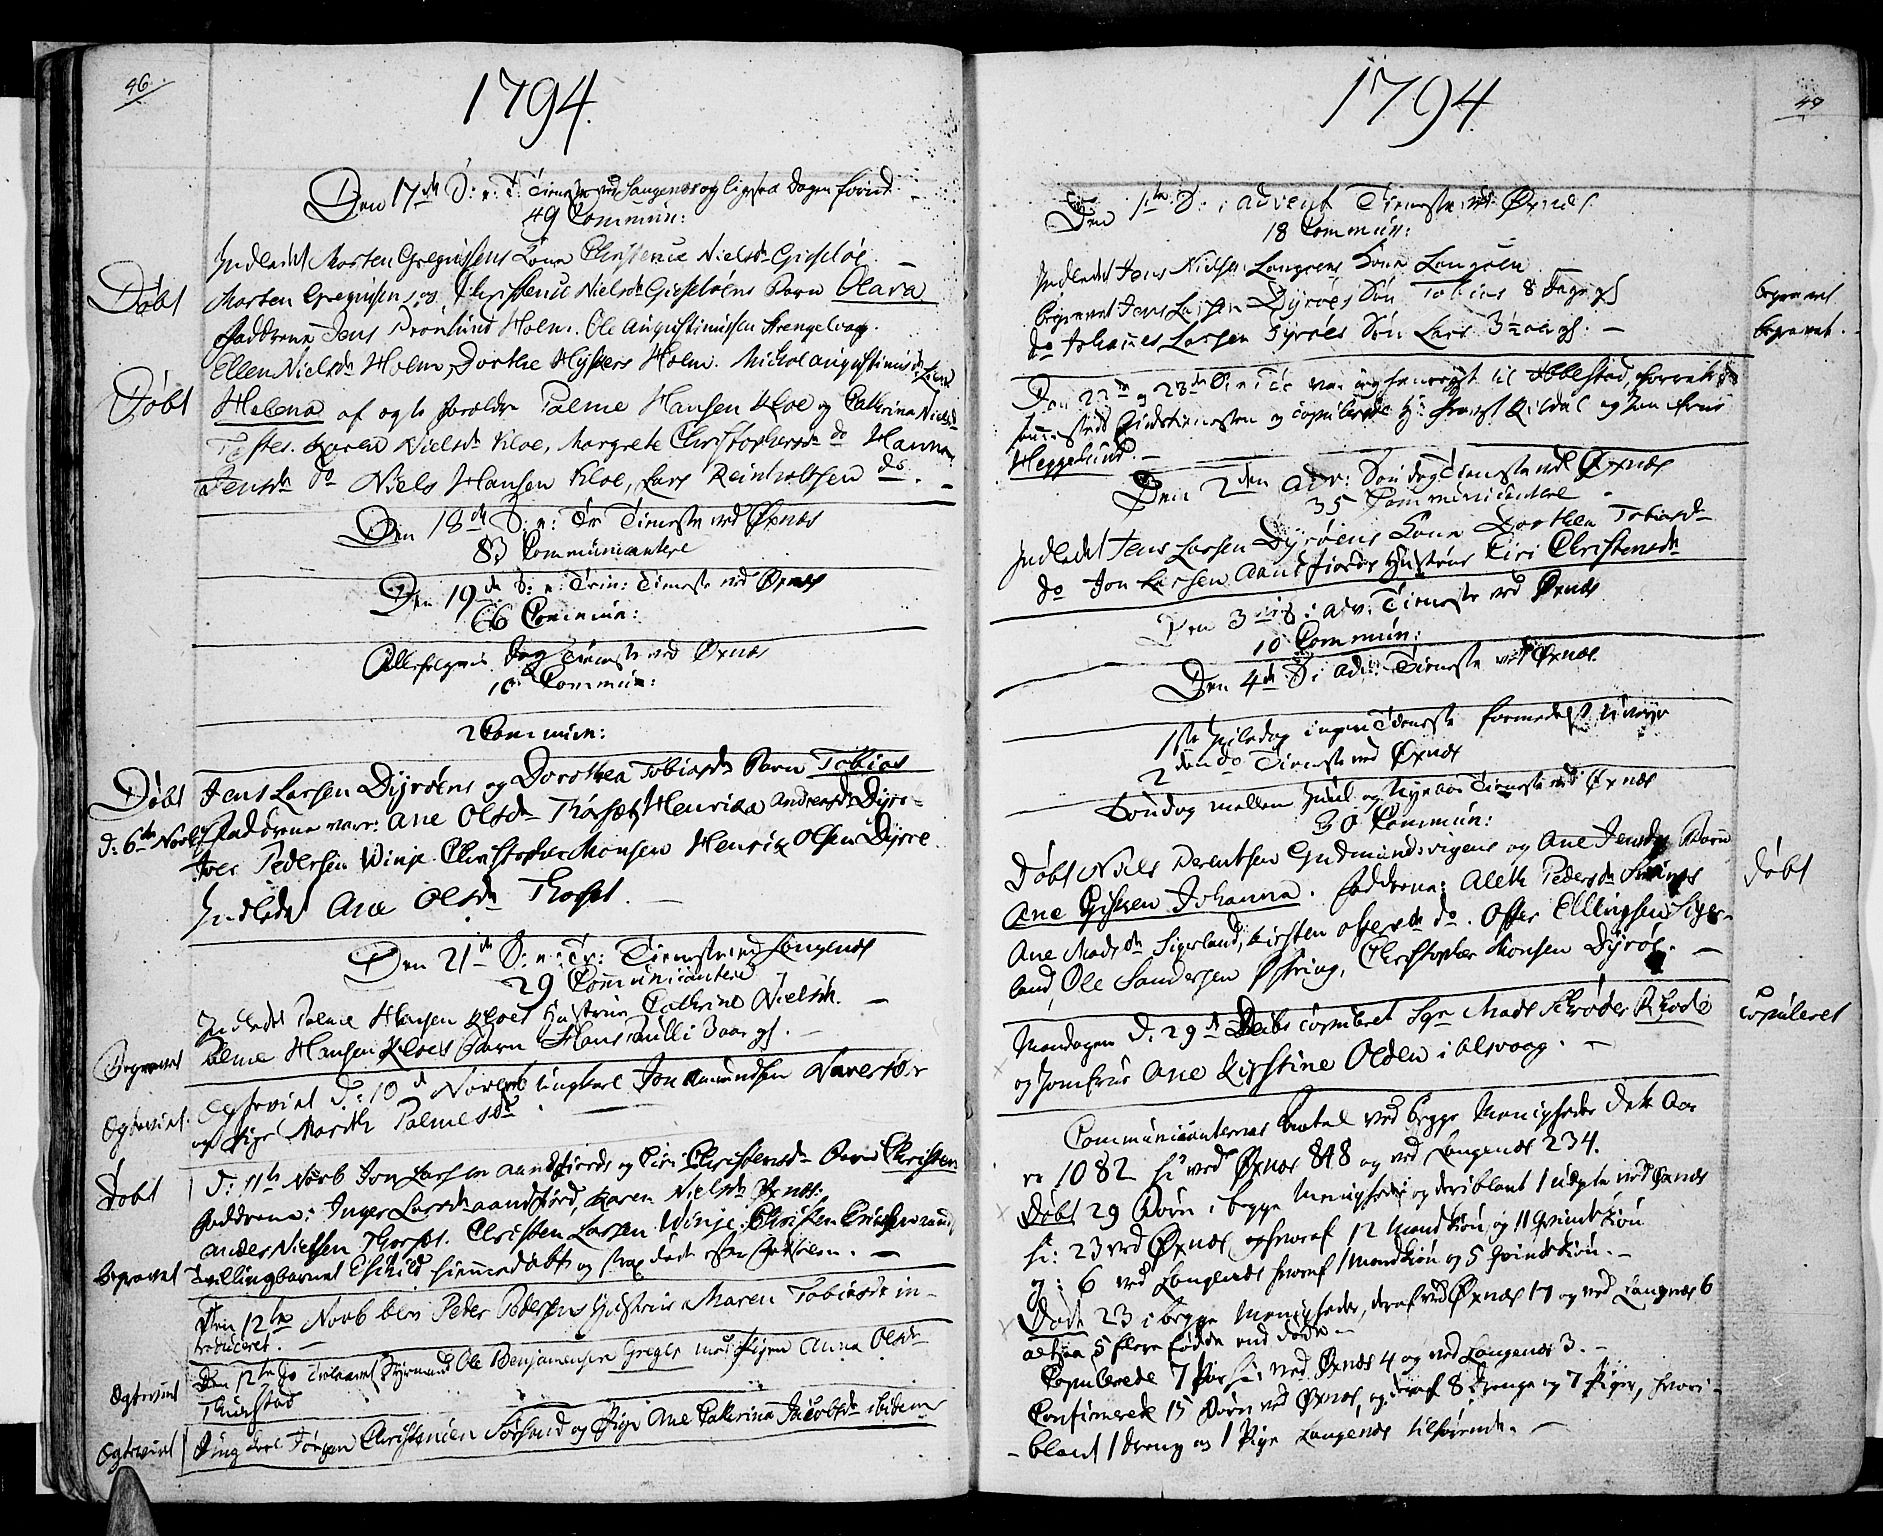 46.
1794.
Den 17de S: e: T: Tieneste ved Langenæs og ligesaa Dagen forud.
49 Commun:
Indledet Morten Gregussens Kone Christence Nielsd: Gisløe. —
Døbt
Morten Gregusens og Christence Nielsd: Gisløens Barn Olava
Faddrene Jens Holm. Ole Augustinussen Strengelvog.
Ellen Nielsd: Holm, Dorthe Holm. Michol Augustinusd:
Døbt
Helena af ægte Forældre Palme Hansen Kloe og Cathrina Nielsd:
Test: Karen Nielsd: Kloe, Margrete Christophersd: do Hanna
Jensd: do Niels Hansen Kloe, Lars Reinholtsen do. —
Den 18de S: e: Tr Tieneste ved Øxnæs
83 Communicantere
Den 19de S: e: Trin: Tieneste ved Øxnæs
66 Commun:
Allehelgens Dag Tieneste ved Øxnæs
10 Commun:
2 Commun:
Døbt
d: 6te Novbr
Jens Larsen Dyrøens og Dorothea Tobiasd: Barn Tobias
Faddrene vare: Ane Olsd: Henrica Andersd: Dyrø-
Iver Pedersen Winje. Christopher Monsen Henrik Olsen Dyrøe.
Indledet Ane Olsd:
Den 21de S: e: Tr: Tieneste ved Langenæs
29 Communicantere
Indledet Palme Hansen Kloes Hustrue Cathrine Nielsd:. —
Begravet
Palme Hansen Kloes Barn Hans 3 aar gl. —
Ægteviet
Ægteviet d: 10de Novemb Ungkarl Jon Amundsen
og Pige Marith Palmesd:
Døbt
d: 11te Novb Jon Larsen Aandfjords og Siri Christensd: Barn Christen
Faddrene: Inger Larsd: Aandfjord, Karen Nielsd: Øxnæs:
Anders Nielsen Christen Larsen Winje. Christen
Begravet
Tvillingbarnet Eschild hiemmedøbt og strax død efter Fødselen. —
Den 12te Novb blev Peder Pedersens Hustrue Maren Tobiasd: in-
troduceret. —
Ægteviet
Den 12te do Ole Benjaminsen med Pigen Anna Olsd:
Ægteviet
Ung Karl Jørgen Christensen og Pige Ane Catrina Jacobsd: ibidem
1794
47
Den 1te S: i Advent Tieneste ved Øxnæs.
18 Commun:
Indledet Jens Nielsen Langøens Kone Langøen
begravet
begravet Jens Larsen Dyrøes Søn Tobias 8 Dage gl
begravet.
do Johannes Larsen Dyrøes Søn Lars 3½ ar gl. —
Den 22de og 23de S: e Tr var ieg til Ibbestad, forrettede
Gudstienesten og copulerede Hr. Qildal og Jomfrue
Heggelund. —
Den 2den Adv: Søndag Tieneste ved Øxnæs
35 Communicantere
Indledet Jens Larsen Dyrøens Kone Dorthea Tobiasd:
do Jon Larsen Aandfjords Hustrue Siri Christensd:
Den 3die S i Adv: Tieneste ved Øxnæs
10 Commun:
Den 4de S i Adv: Tieneste ved Øxnæs.
1ste Juledag ingen Tieneste formedelst Uveyr
2den do Tieneste ved Øxnæs
Søndag mellem Juul og Nyeaar Tieneste ved Øxnæs
30 Commun:
Døbt
Døbt Niels Berentsen Gudmundsvigens og Ane Jensd: Barn
Ane Johanna. Faddrene: Aleth Pedersd:
Ane Madsd: Sigerland, Kirsten Offersd: do. Offer Ellingsen Siger-
land, Ole Sandersen Christopher Monsen Dyrøe. —
Copuleret
Mandagen d: 29de Decbr copuleret Sgr Mads Schrøder Rhode
og Jomfrue Ane Kirstine Olden i Alsvaag. —
Communicanternes Antal ved begge Menigheder dette Aar
er 1082 hv: ved Øxnæs 848 og ved Langenæs 234.
Døbt 29 Børn i begge Menigheder og deriblant 1 uægte ved Øxnæs
hv: 23 ved Øxnæs og hvoraf 12 Mandkiøn og 11 Qvindekiøn
og: 6 ved Langenæs hvoraf 1 Mandkiøn og 5 Qvindekiøn. —
Døde 23 i begge Menigheder, deraf ved Øxnæs 17 og ved Langenæs 6
altsaa 5 flere fødde end døde —
Copulerede 7 Par hv: ved Øxnæs 4 og ved Langenæs 3. —
Confirmerede 15 Børn ved Øxnæs, og deraf 8 Drenge og 7 Piger, hvori-
blant 1 Dreng og 1 Pige Langenæs tilhørende. —